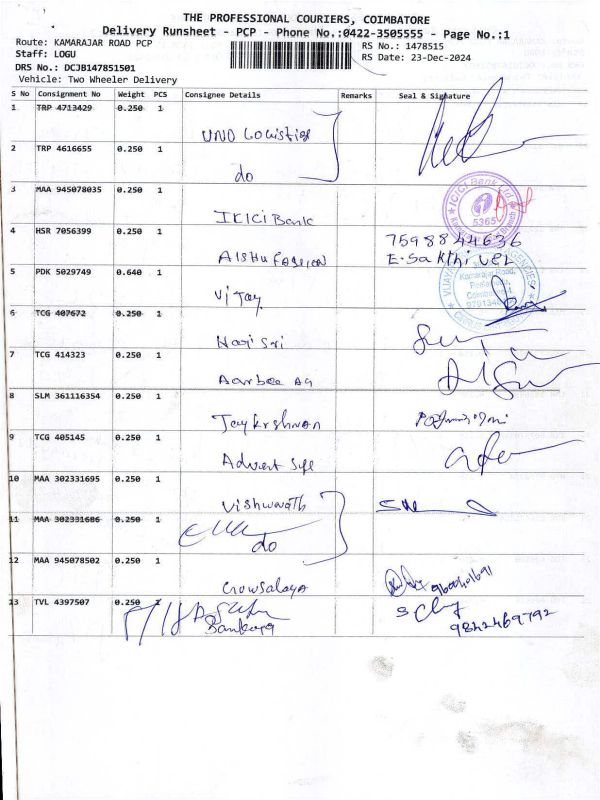 THE PROFESSIONAL COURIERS, COIMBATORE
Delivery Runsheet - PCP - Phone No.:0422-3505555 - Page No.:1
Route: KAMARAJAR ROAD PCP
RS No.: 1478515
Staff: LOGU
RS Date: 23-Dec-2024
DRS No.: DCJB147851501
Vehicle: Two Wheeler Delivery
S No Consignment No Weight PCS Consignee Details Remarks Seal & Signature
1 TRP 4713429 0.250 1
UND Logistics
2 TRP 4616655 0.250 1
do
3 MAA 945078035 0.250 1
ICICI Bank
ICICI Bank Ltd
5365
4 HSR 7056399 0.250 1
Aishu Fashion
7598844636
E. Sakthivel
5 PDK 5029749 0.640 1
Vijay
Kamarajar Road,
6 TCG 407672 0.250 1
Hari Sri
7 TCG 414323 0.250 1
Aarbee
8 SLM 361116354 0.250 1
Jaykrshnan
9 TCG 405145 0.250 1
Advent
10 MAA 302331695 0.250 1
Vishwanath
11 MAA 302331686 0.250 1
do
12 MAA 945078502 0.250 1
Gowsalaya
9600401691
13 TVL 4397507 0.250
9842469792